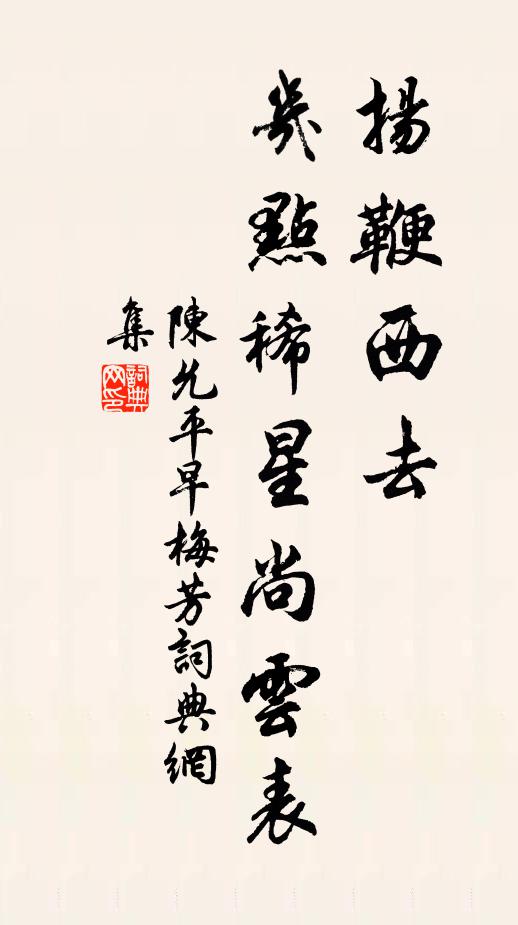 揚鞭西去
幾點稀星尚雲表
陳允平早梅芳詞典網
集
詞典
网印